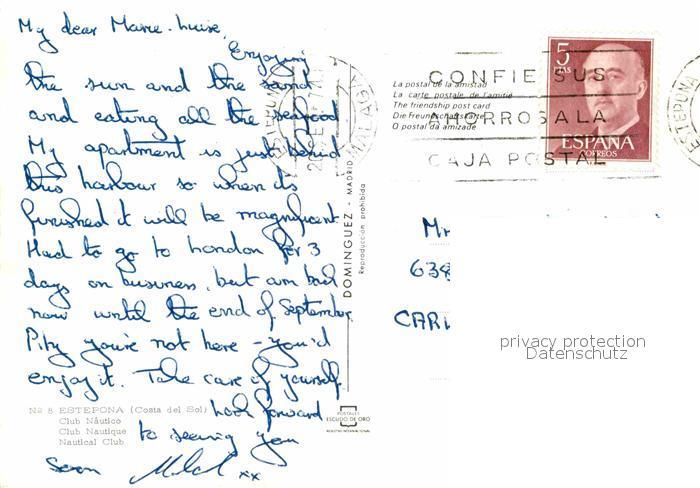 My dear Marie-Luise,
Enjoying
the sun and the sand
and eating all the seafood
My apartment is just behind
this harbour so when its
finished it will be magnificent
Had to go to London for 3
days on business, but am back
now until the end of September
Pity you're not here - you'd
enjoy it. Take care of yourself
look forward
to seeing you
soon
xx
Nº 8 ESTEPONA (Costa del Sol)
Club Náutico
Club Nautique
Nautical Club
POSTALES
ESCUDO DE ORO
REGISTRO INTERNACIONAL
DOMINGUEZ - MADRID
Reproducción prohibida
La postal de la amistad
La carte postale de l'amitié
The friendship post card
Die Freundschaftskarte
O postal da amizade
ESTEPONA
MALAGA
CONFIE SUS
AHORROS A LA
CAJA POSTAL
5
PTAS
ESPAÑA
CORREOS
ESTEPONA
639
privacy protection
Datenschutz